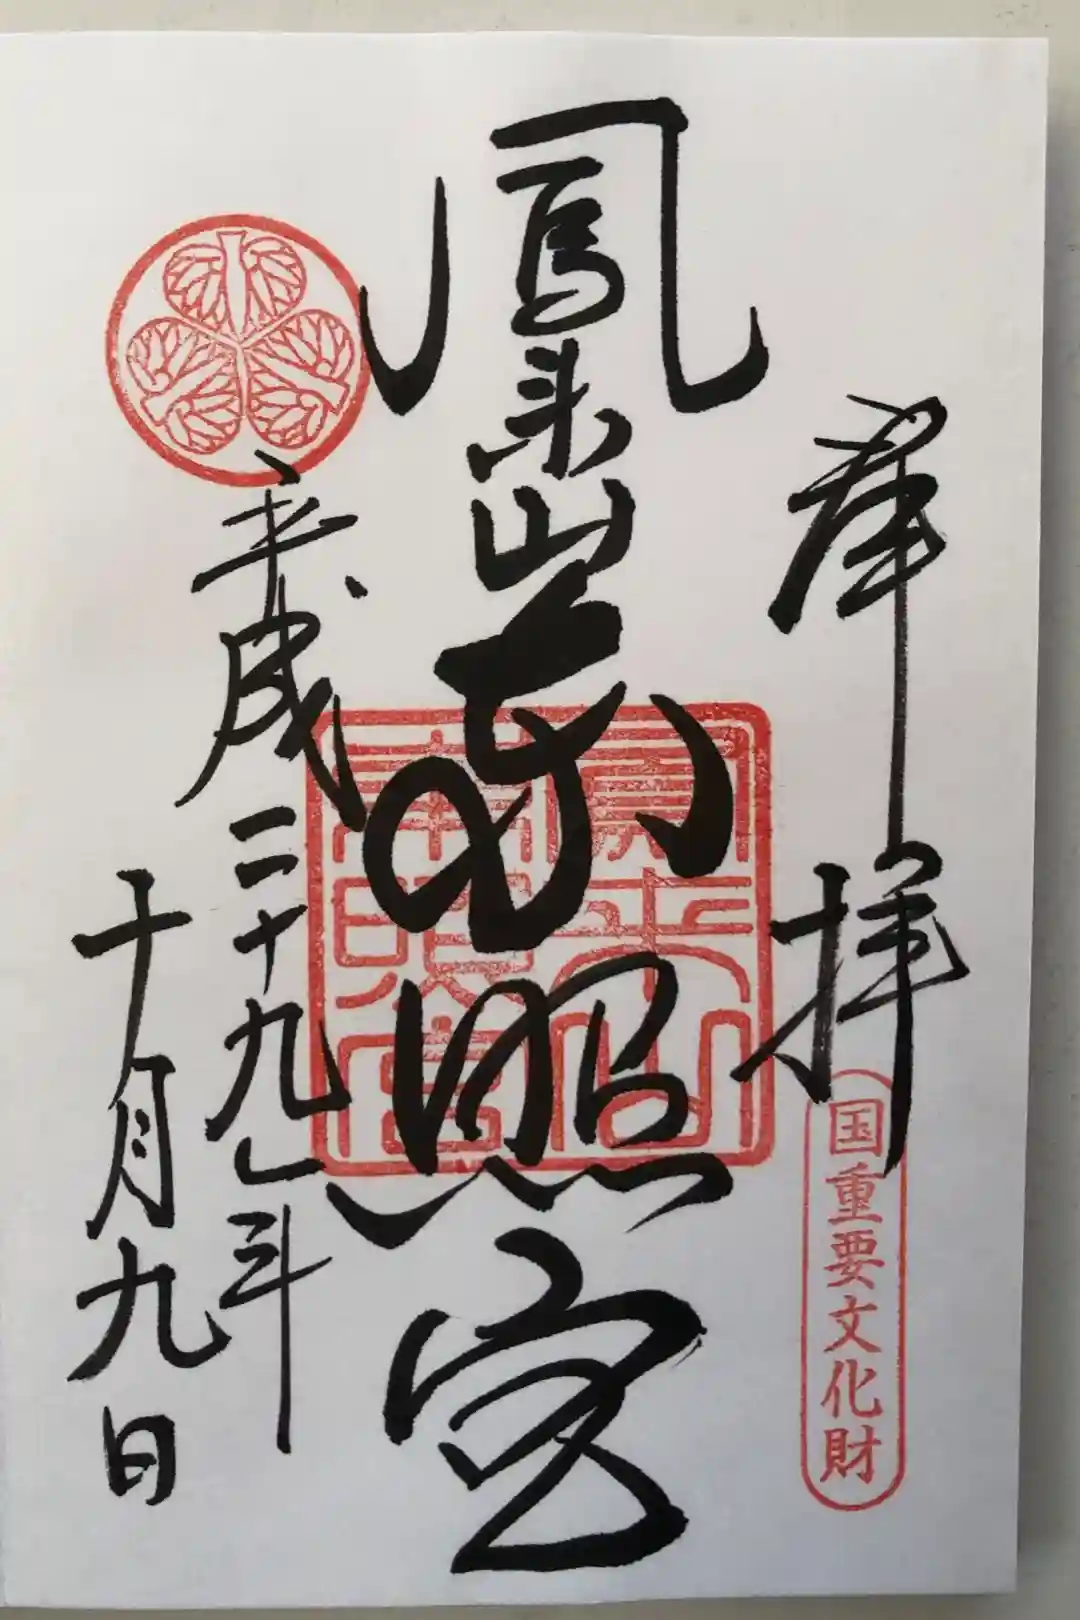 奉拝
国重要文化財
鳳来山東照宮
鳳来山
東照宮
平成二十九年
十月九日